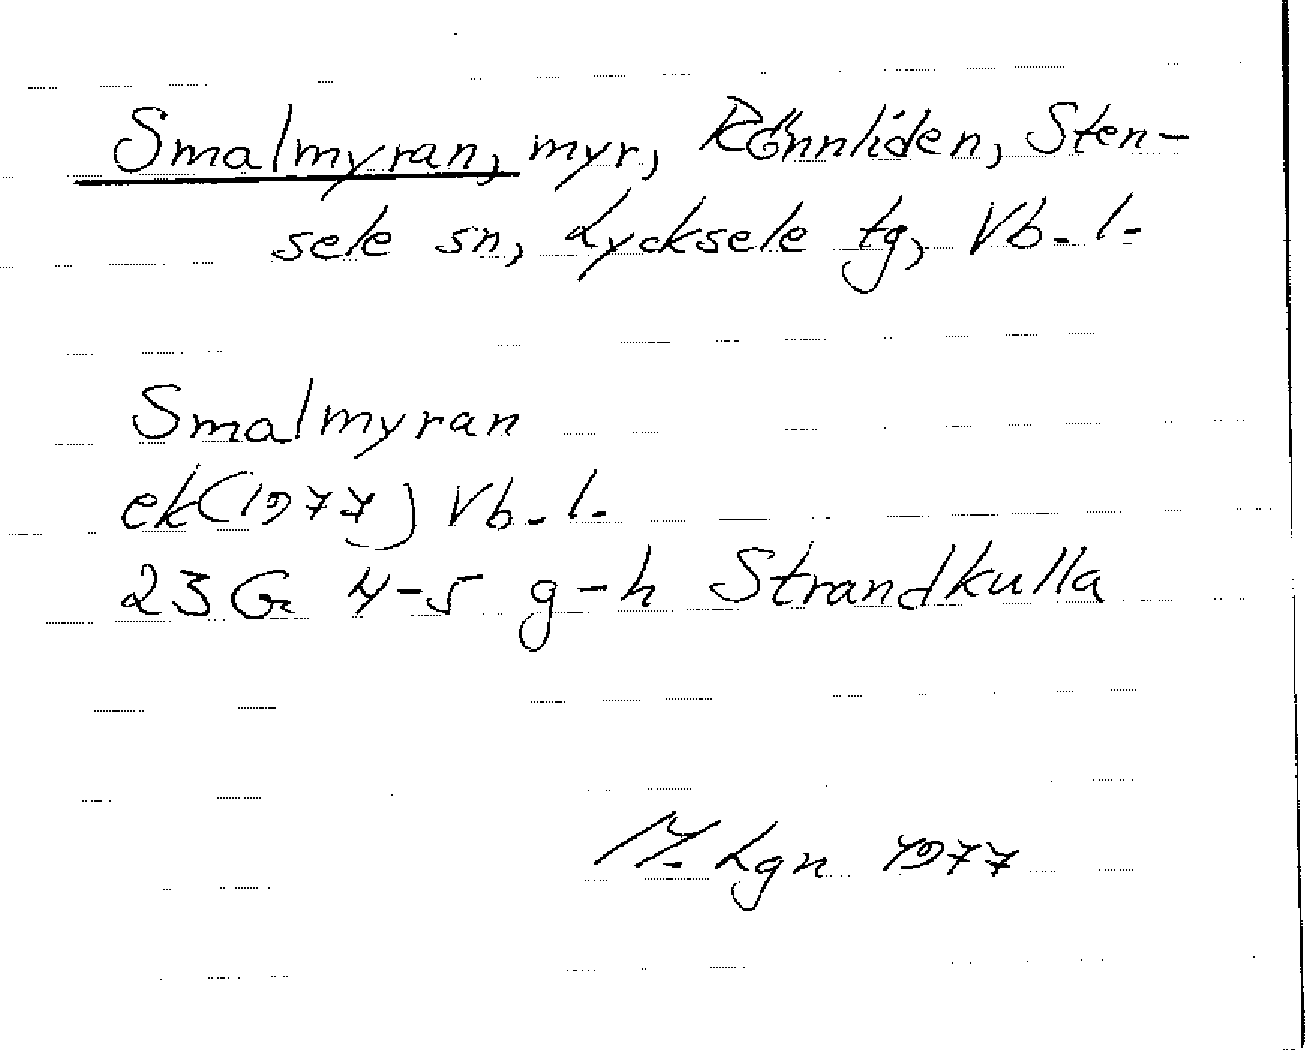 Smalmyran, myr, Rönnliden, Sten-
sele sn, Lycksele tg, Vb. l.
Smalmyran
ek (1977) Vb. l.
23 G 4-5 g-h Strandkulla
Lgn 1977